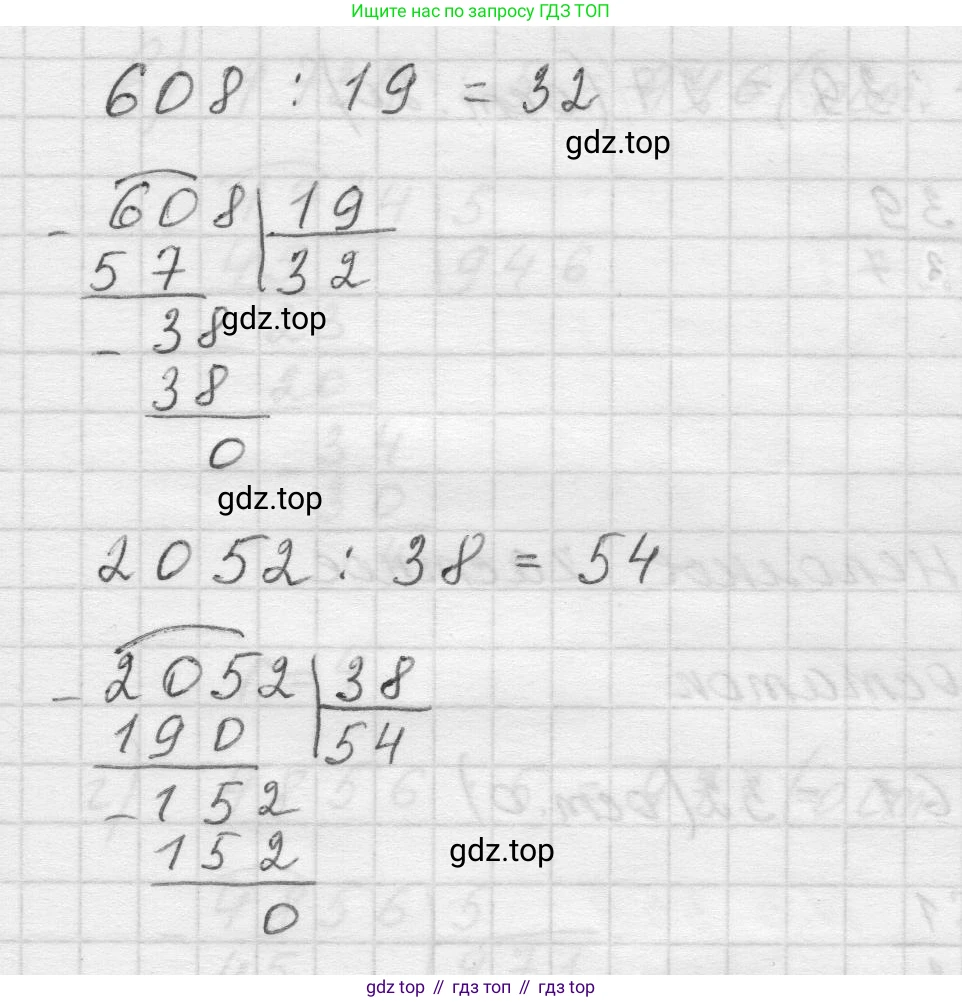 Ищите нас по запросу ГДЗ ТОП
608 : 19 = 32
gdz.top
- 608 | 19
57 | 32
- 38
gdz.top
38
0
gdz.top
2052 : 38 = 54
- 2052 | 38
190 | 54
- 152
152
gdz.top
0
gdz top // гдз топ // gdz top